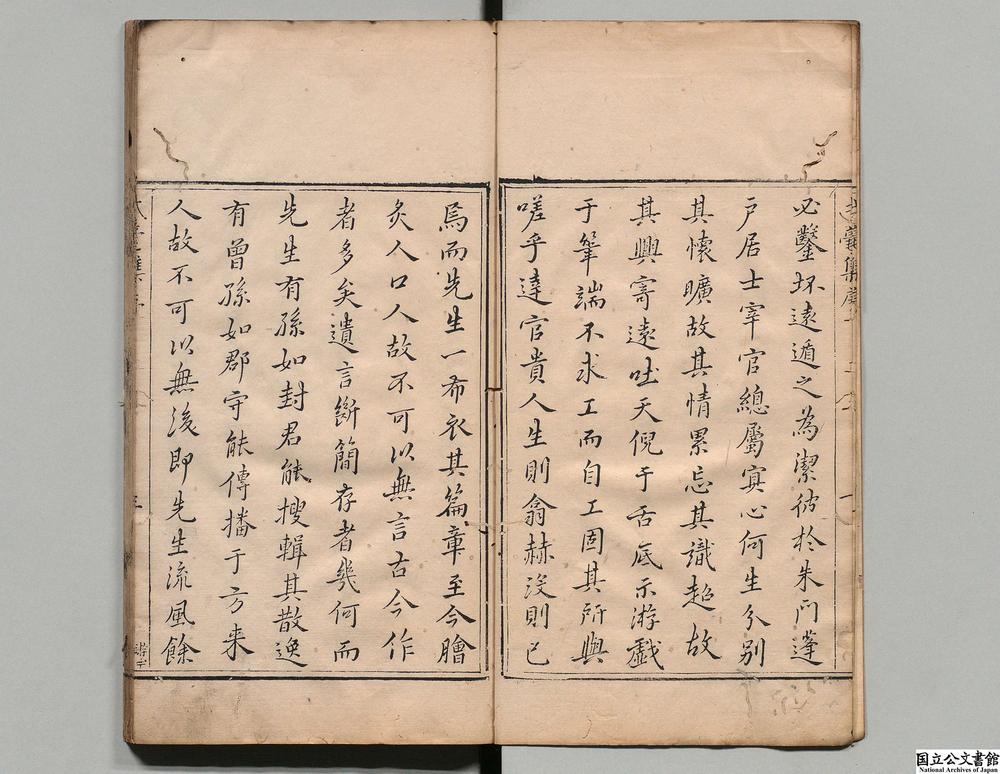 必鑿坏遠遁之為潔彼於朱門蓬
戶居士宰官總屬寘心何生分別
其懷曠故其情累忘其識超故
其興寄遠吐天倪于舌底示游戲
于筆端不求工而自工固其所與
嗟乎達官貴人生則翕赫沒則已
焉而先生一布衣其篇章至今膾
炙人口人故不可以無言古今作
者多矣遺言斷簡存者幾何而
先生有孫如封君能搜輯其散逸
有曾孫如郡守能傳播于方来
人故不可以無後即先生流風餘
国立公文書館
National Archives of Japan